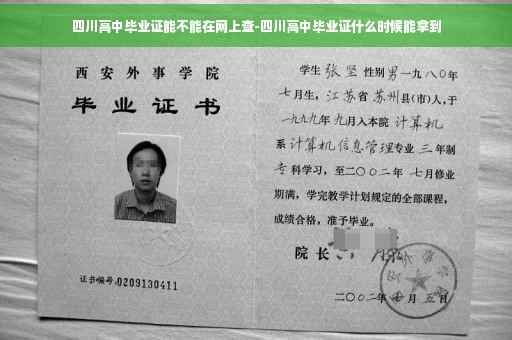 四川高中毕业证能不能在网上查-四川高中毕业证什么时候能拿到
西安外事学院
毕业证书
证书编号:0209130411
学生 张坚 性别男一九八〇年
七月生，江苏省苏州县(市)人,于
一九九九年九月入本院 计算机
系 计算机信息管理专业 三 年制
专科学习，至二〇〇二年 七月修业
期满，学完教学计划规定的全部课程，
成绩合格，准予毕业。
院长
二〇〇二年 月 五日